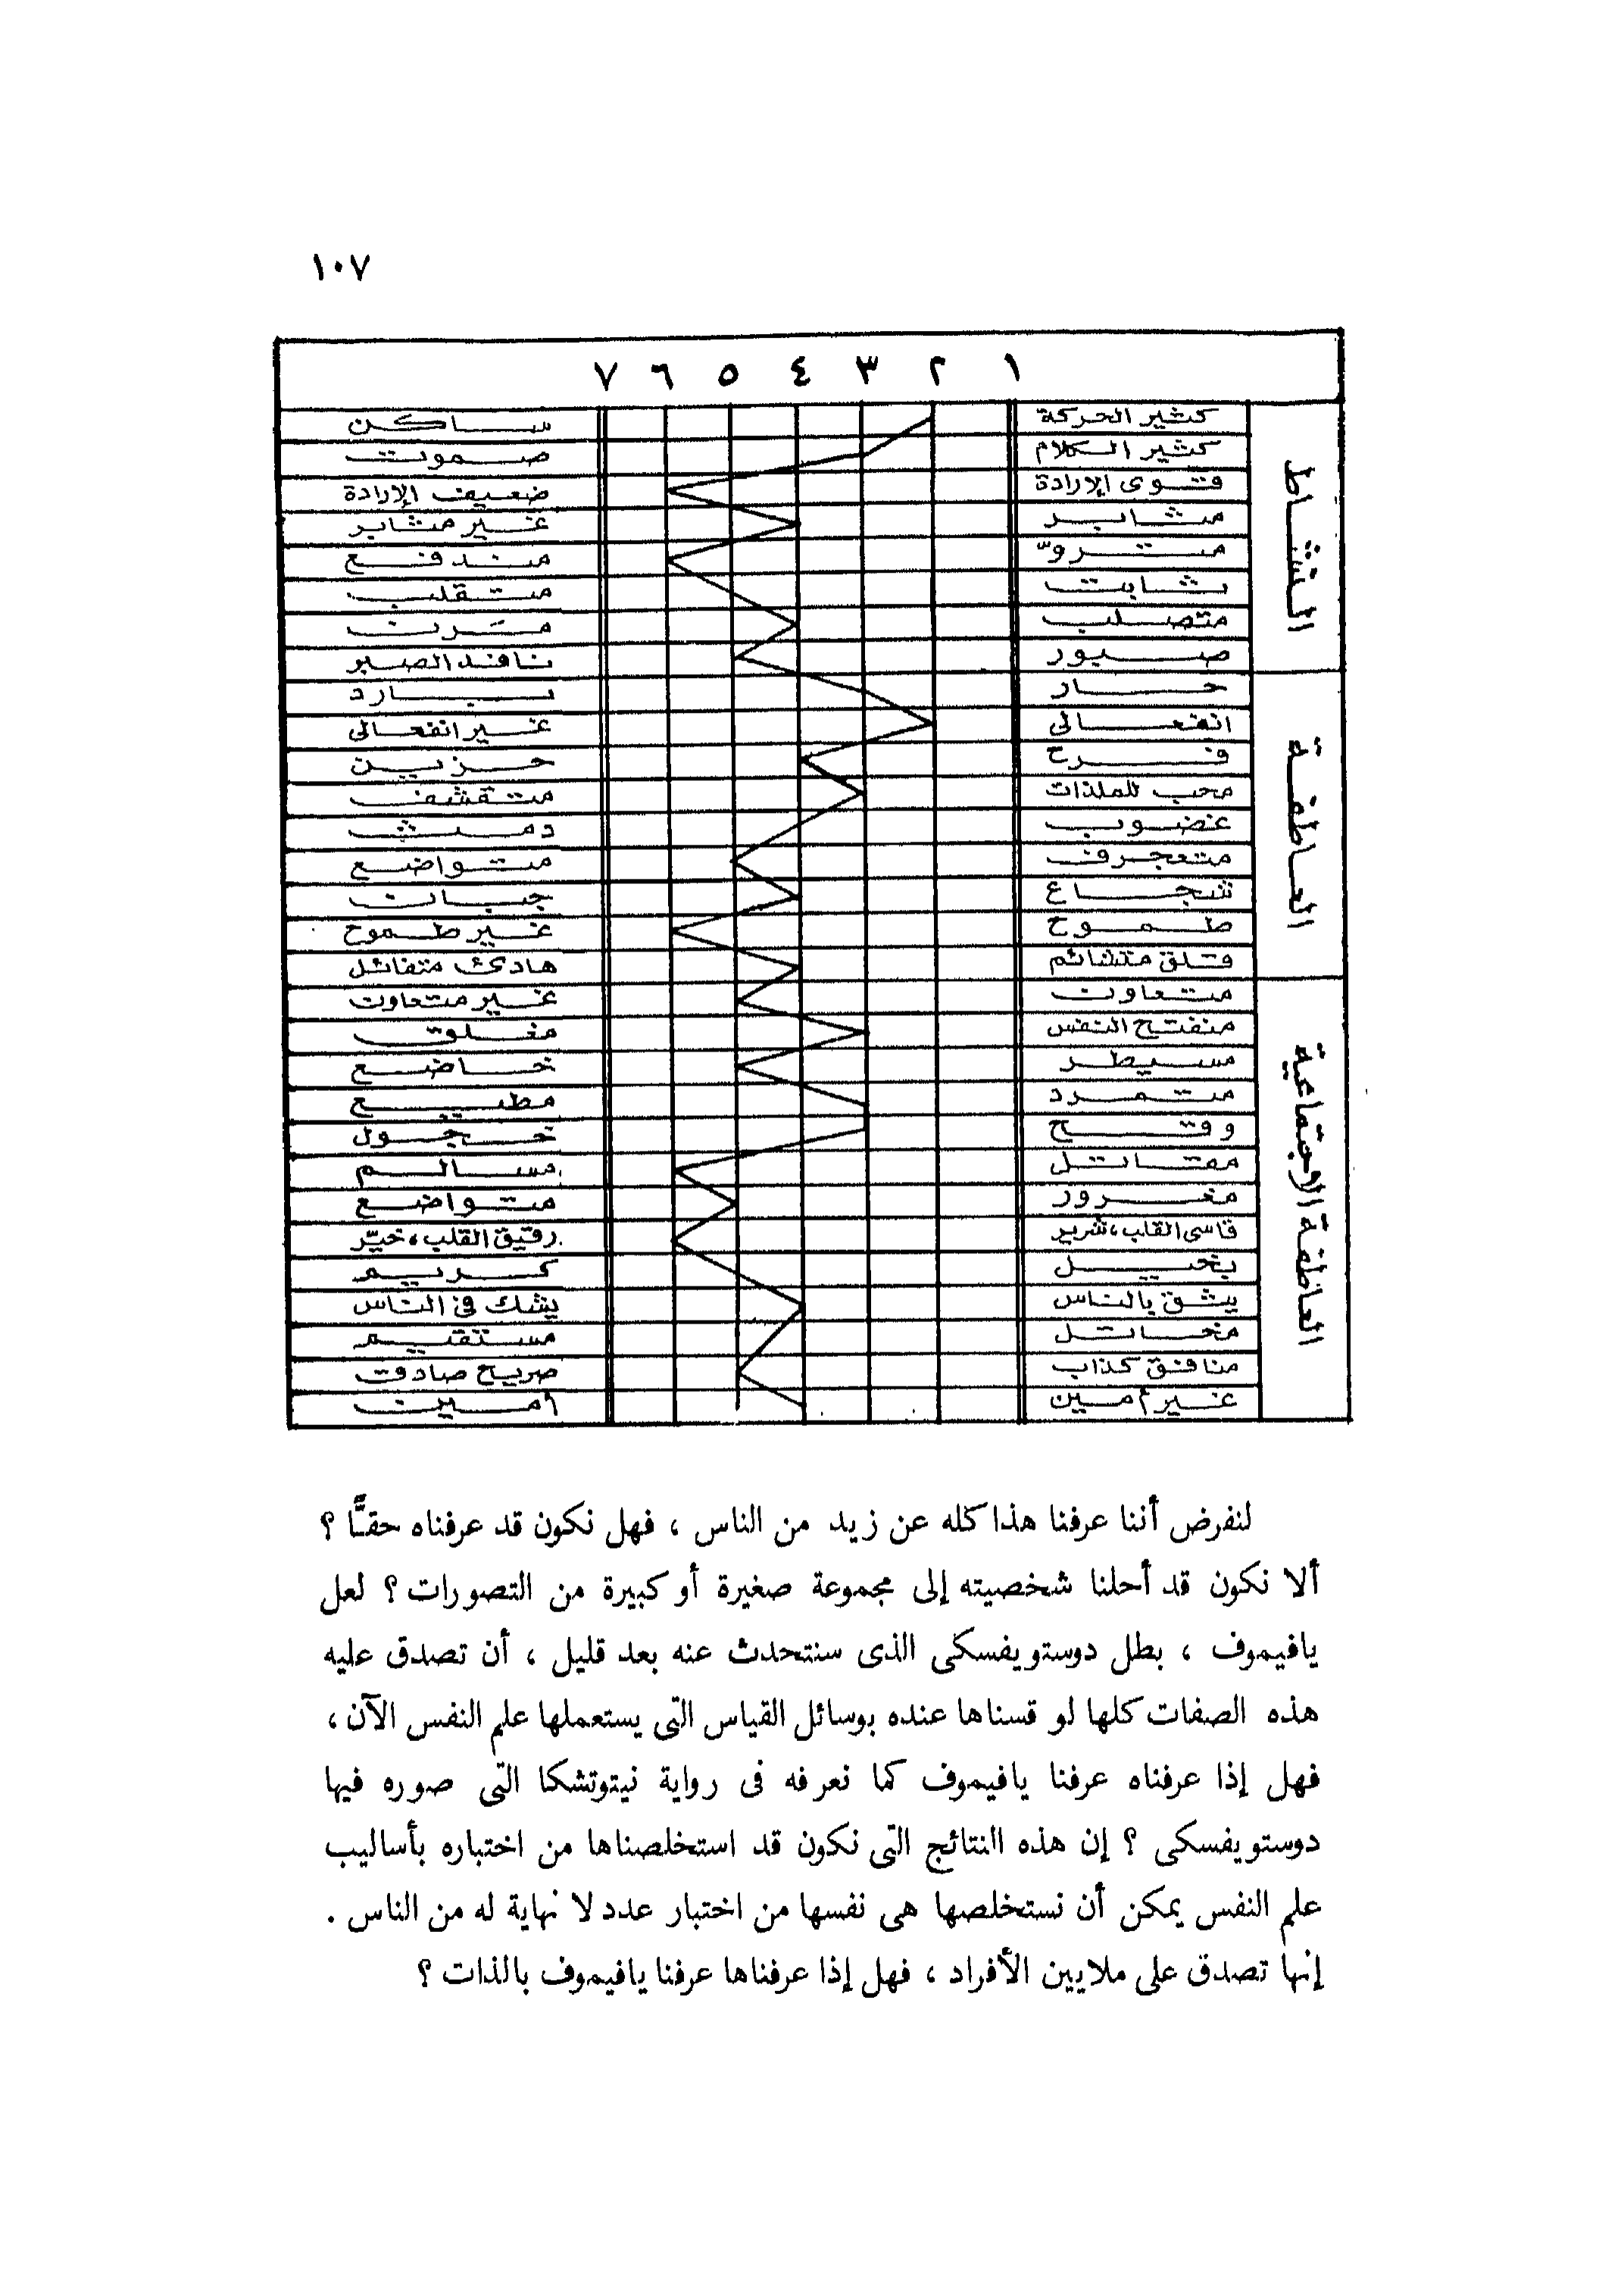 ١٠٧
١ ٢ ٣ ٤ ٥ ٦ ٧
النشاط
كثير الحركة ساكن
كثير الكلام صموت
قوى الإرادة ضعيف الإرادة
مثابر غير مثابر
متروّ مندفع
ثابت متقلب
متصلب مَرن
صبور نافد الصبر
العاطفة
حار بارد
انفعالى غير انفعالى
فرح حزين
محب للملذات متقشف
غضوب دمث
متعجرف متواضع
شجاع جبان
طموح غير طموح
قلق متشائم هادئ متفائل
العاطفة الاجتماعية
متعاون غير متعاون
منفتح النفس مغلق
مسيطر خاضع
متمرد مطيع
وقح خجول
مقاتل مسالم
مغرور متواضع
قاسى القلب، شرير رقيق القلب، خيّر
بخيل كريم
يثق بالناس يشك فى الناس
مخاتل مستقيم
منافق كذاب صريح صادق
غير أمين أمين
لنفرض أننا عرفنا هذا كله عن زيد من الناس ، فهل نكون قد عرفناه حقًّا ؟
ألا نكون قد أحلنا شخصيته إلى مجموعة صغيرة أو كبيرة من التصورات ؟ لعل
يافيموف ، بطل دوستويفسكى الذى سنتحدث عنه بعد قليل ، أن تصدق عليه
هذه الصفات كلها لو قسناها عنده بوسائل القياس التى يستعملها علم النفس الآن ،
فهل إذا عرفناه عرفنا يافيموف كما نعرفه فى رواية نيتوتشكا التى صوره فيها
دوستويفسكى ؟ إن هذه النتائج التى نكون قد استخلصناها من اختباره بأساليب
علم النفس يمكن أن نستخلصها هى نفسها من اختبار عدد لا نهاية له من الناس .
إنها تصدق على ملايين الأفراد ، فهل إذا عرفناها عرفنا يافيموف بالذات ؟